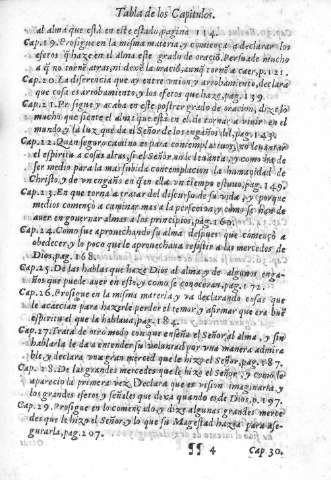 Tabla de los Capitulos.
al alma que està en este estado, pagina 114.
Cap. 19. Prosigue en la misma materia, y comiença a declarar los
efetos q̃ haze en el alma este grado de oraciõ. Persuade mucho
a q̃ no tornẽ atras, ni dexẽ la oraciõ, aunq̃ tornẽ a caer, p. 121.
Cap. 20. La diferencia que ay entre vnion y arrobamiento, declara
que cosa es arrobamiento, y los efetos que haze, pag. 139.
Cap. 21. Prosigue y acaba en este postrer grado de oracion, dize lo
mucho que siente el alma que està en el, de tornar a viuir en el
mundo, y la luz que da el Señor de los engaños del, pag. 143.
Cap. 22. Quan seguro camino es para contemplatiuos, no leuantar
el espiritu a cosas altas, si el Señor no le leuanta, y como ha de
ser medio para la mas subida contemplacion la humanidad de
Christo, y de vn engaño en q̃ en ella vn tiempo estuuo, pag. 149.
Cap. 23. En que torna a tratar del discurso de su vida, y porque
medios començò a caminar mas a la perfecion, y como se han de
auer en gouernar almas a los principios, pag. 160.
Cap. 24. Como fue aprouechando su alma despues que començò a
obedecer, y lo poco que le aprouechaua resistir a las mercedes de
Dios, pag. 168.
Cap. 25. De las hablas que haze Dios al alma, y de algunos enga-
ños que puede auer en esto, y como se conoceran, pag. 172.
Cap. 26. Prosigue en la misma materia, y va declarando cosas que
le acaecian para hazerle perder el temor, y afirmar que era buẽ
espiritu el que la hablaua, pag. 184.
Cap. 27. Trata de otro modo con que enseña el Señor al alma, y sin
hablarla le da a entender su voluntad por vna manera admira
ble, y declara vna gran merced que le hizo el Señor, pag. 187.
Cap. 28. De las grandes mercedes que le hizo el Señor, y como le
aparecio la primera vez. Declara que es vision imaginaria, y
los grandes efetos y señales que dexa quando es de Dios, p. 197.
Cap. 29. Prosigue en lo començado, y dize algunas grandes merce
des que le hizo el Señor, y lo que su Magestad hazia para ase-
gurarla, pag. 207.
¶¶ 4 Cap 30.